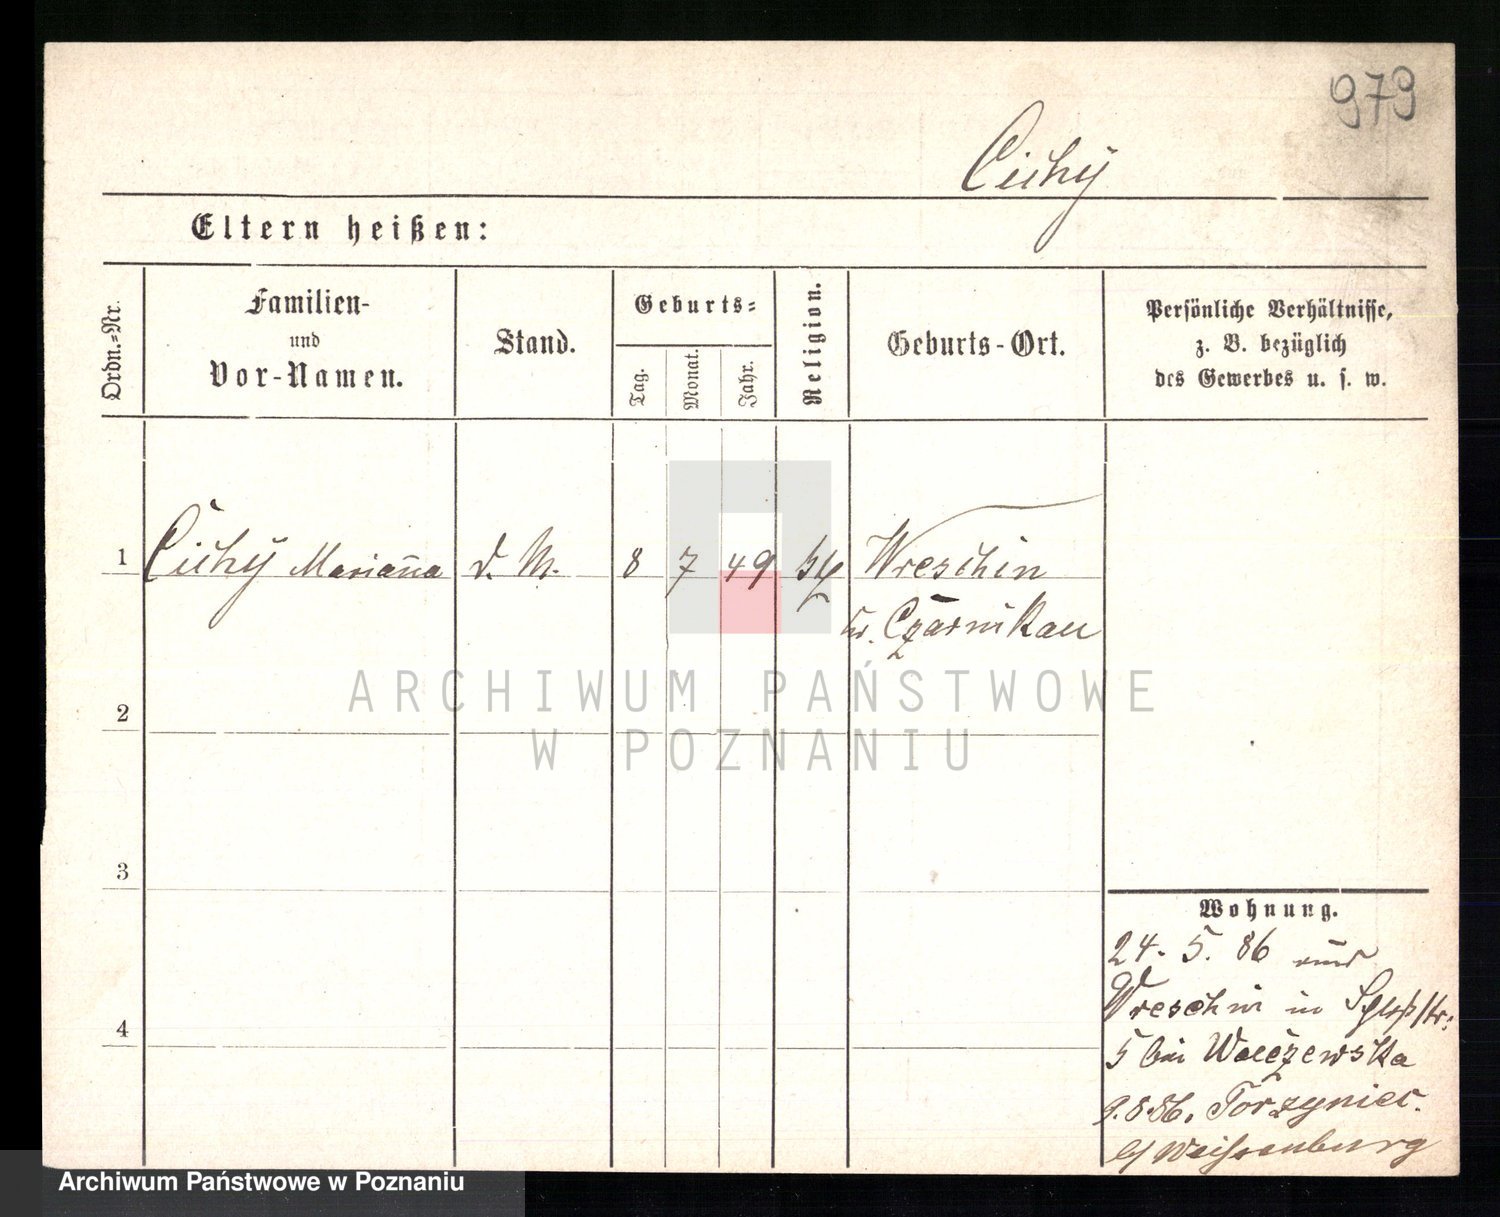 979
Cichy
Eltern heißen:
Ordn.-Nr.
Familien-
und
Vor-Namen.
Stand.
Geburts-
Tag.
Monat.
Jahr.
Religion.
Geburts-Ort.
Persönliche Verhältnisse,
z. B. bezüglich
des Gewerbes u. s. w.
1 Cichy Marianna d. M. 8 7 49 Wreschin
Czarnikau
2
3
4
Wohnung.
24. 5. 86 aus
Wreschin in Schloßstr.
5 bei Walczewska
9.8.86. Torzyniec
b/ Weissenburg
ARCHIWUM PAŃSTWOWE
W POZNANIU
Archiwum Państwowe w Poznaniu